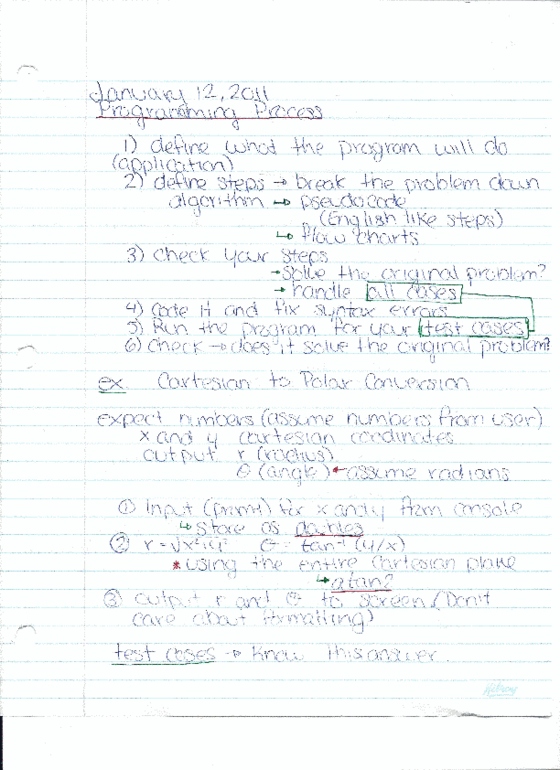 January 12, 2011
Programming Process
1) define what the program will do
(application)
2) define steps → break the problem down
algorithm → pseudocode
(English like steps)
↳ flow charts
3) Check your steps
→ solve the original problem?
→ handle all cases
4) Code it and fix syntax errors
5) Run the program for your test cases
6) Check → does it solve the original problem?
ex Cartesian to Polar Conversion
expect numbers (assume numbers from user)
x and y cartesian cordinates
output r (radius)
θ (angle) ← assume radians
① Input (prompt) for x and y from console
↳ store as doubles
② r = √x²+y² θ = tan⁻¹ (y/x)
* using the entire Cartesian plane
↳ atan2
③ output r and θ to screen (Don't
care about formatting)
test cases → Know this answer.